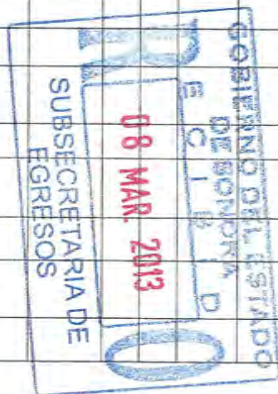 GOBIERNO DEL ESTADO
DE SONORA
RECIBIDO
08 MAR. 2013
SUBSECRETARIA DE
EGRESOS